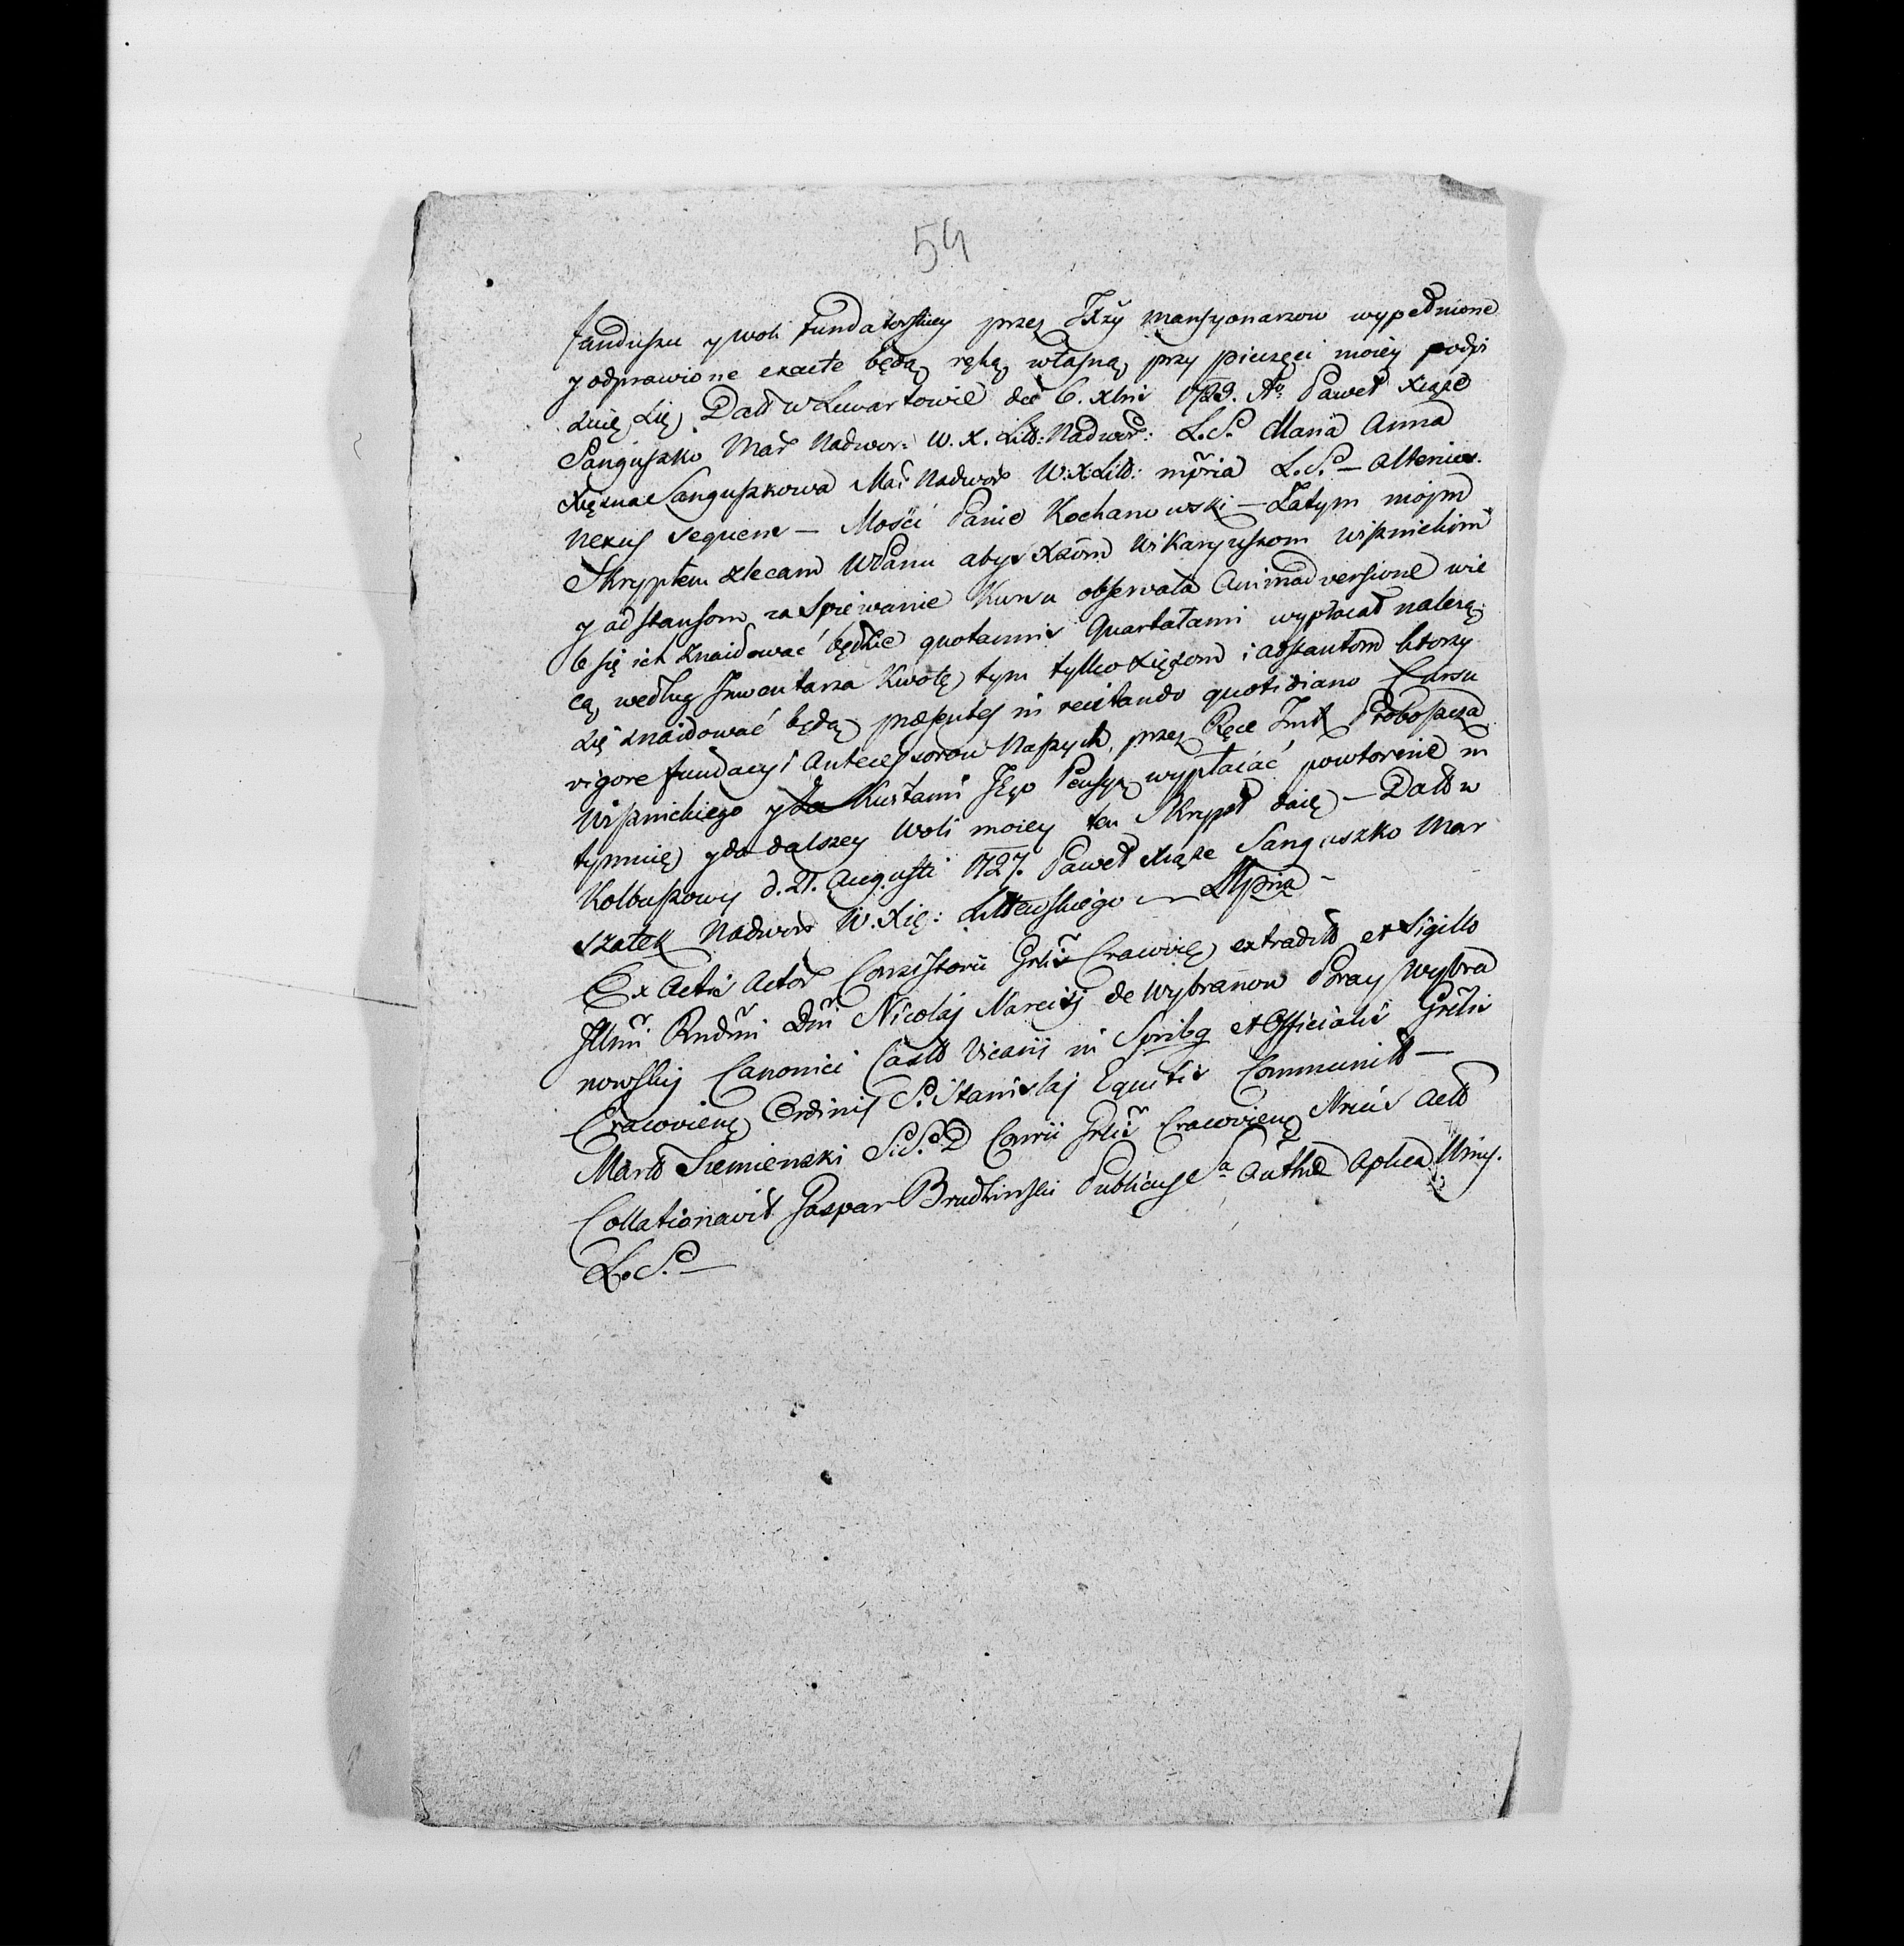 54
funduszu y woli Fundatorskiey przez Trzy mansyonarzow wypełnione
y odprawione exacte będą, ręką własną, przy pieczęci moiey podpi
suię się, Datt w Lewartowie die 6. Xbris 1729. Paweł Xiąże
Sanguszko Mar Nadwor: W. X. Litt: Nadwor: L.S. Maria Anna
Xiężna Sanguszkowa Mar Nadwor W.X.Litt: mpria L.S. — Alterius
Nexus sequens — Mości Panie Kochanowski — Zatym moim
Skryptem zlecam WPanu abys Xżom Wikaryuszom wisznickim
y adstansom za spiewanie Kursu observata animadversione wie
le się ich znaidować będzie quotannis Quartałami wypłacał należą
cą, według Inwentarza Kwotę, tym tylko Xiężom i adstantom ktorzy
się znaidować będą praesentes in recitando quotidiano Cursu
vigore fundacyi Antecessorow Naszych, przez Ręce Jmć Proboszcza
Wisznickiego y da Kustami Jego Pensyą wypłacać powtornie in
tymuię, y do dalszey Woli moiey ten Skrypt daię — Datt w
Kolbuszowy d. 21. Augusti 1727. Paweł Xiąże Sanguszko Mar
szałek Nadwor W. Xię: Littewskiego — Mpria —
Ex Actis Actor Consistorii Grlis Cracovien, extradit et Sigillo
Illmi Rndmi Dni Nicolaj Narcisj de Wybranow Poray Wybra
nowskij Canonici Cath Vicarii in Spribg et Officialis Grelis
Cracovien, Ordinis S. Stanislaj Equitis Communit —
Mart Siemienski S.S.D Consrii Grlis Cracovien, Nrius Actt
Collationavit Gaspar Brudzinski Publicus Sa Authte Aplica
L.S. —